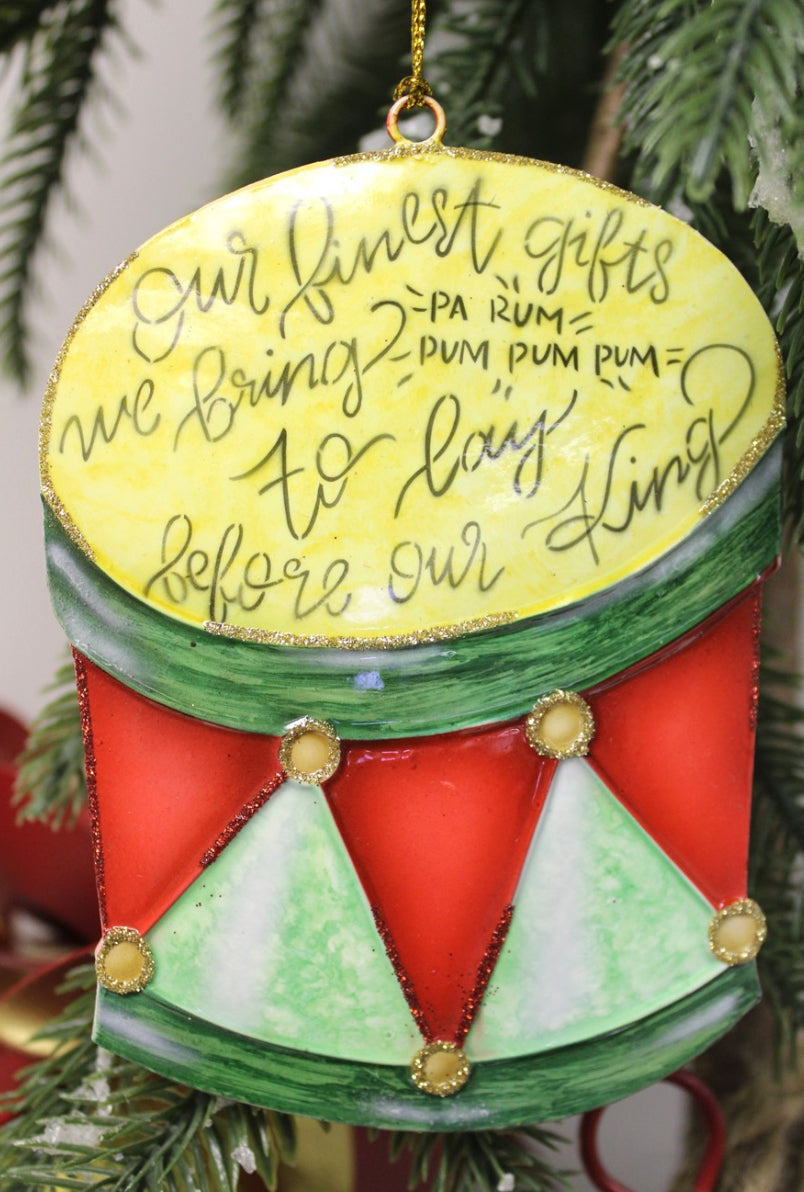 our finest gifts
we bring PA RUM
PUM PUM PUM
to lay
before our King